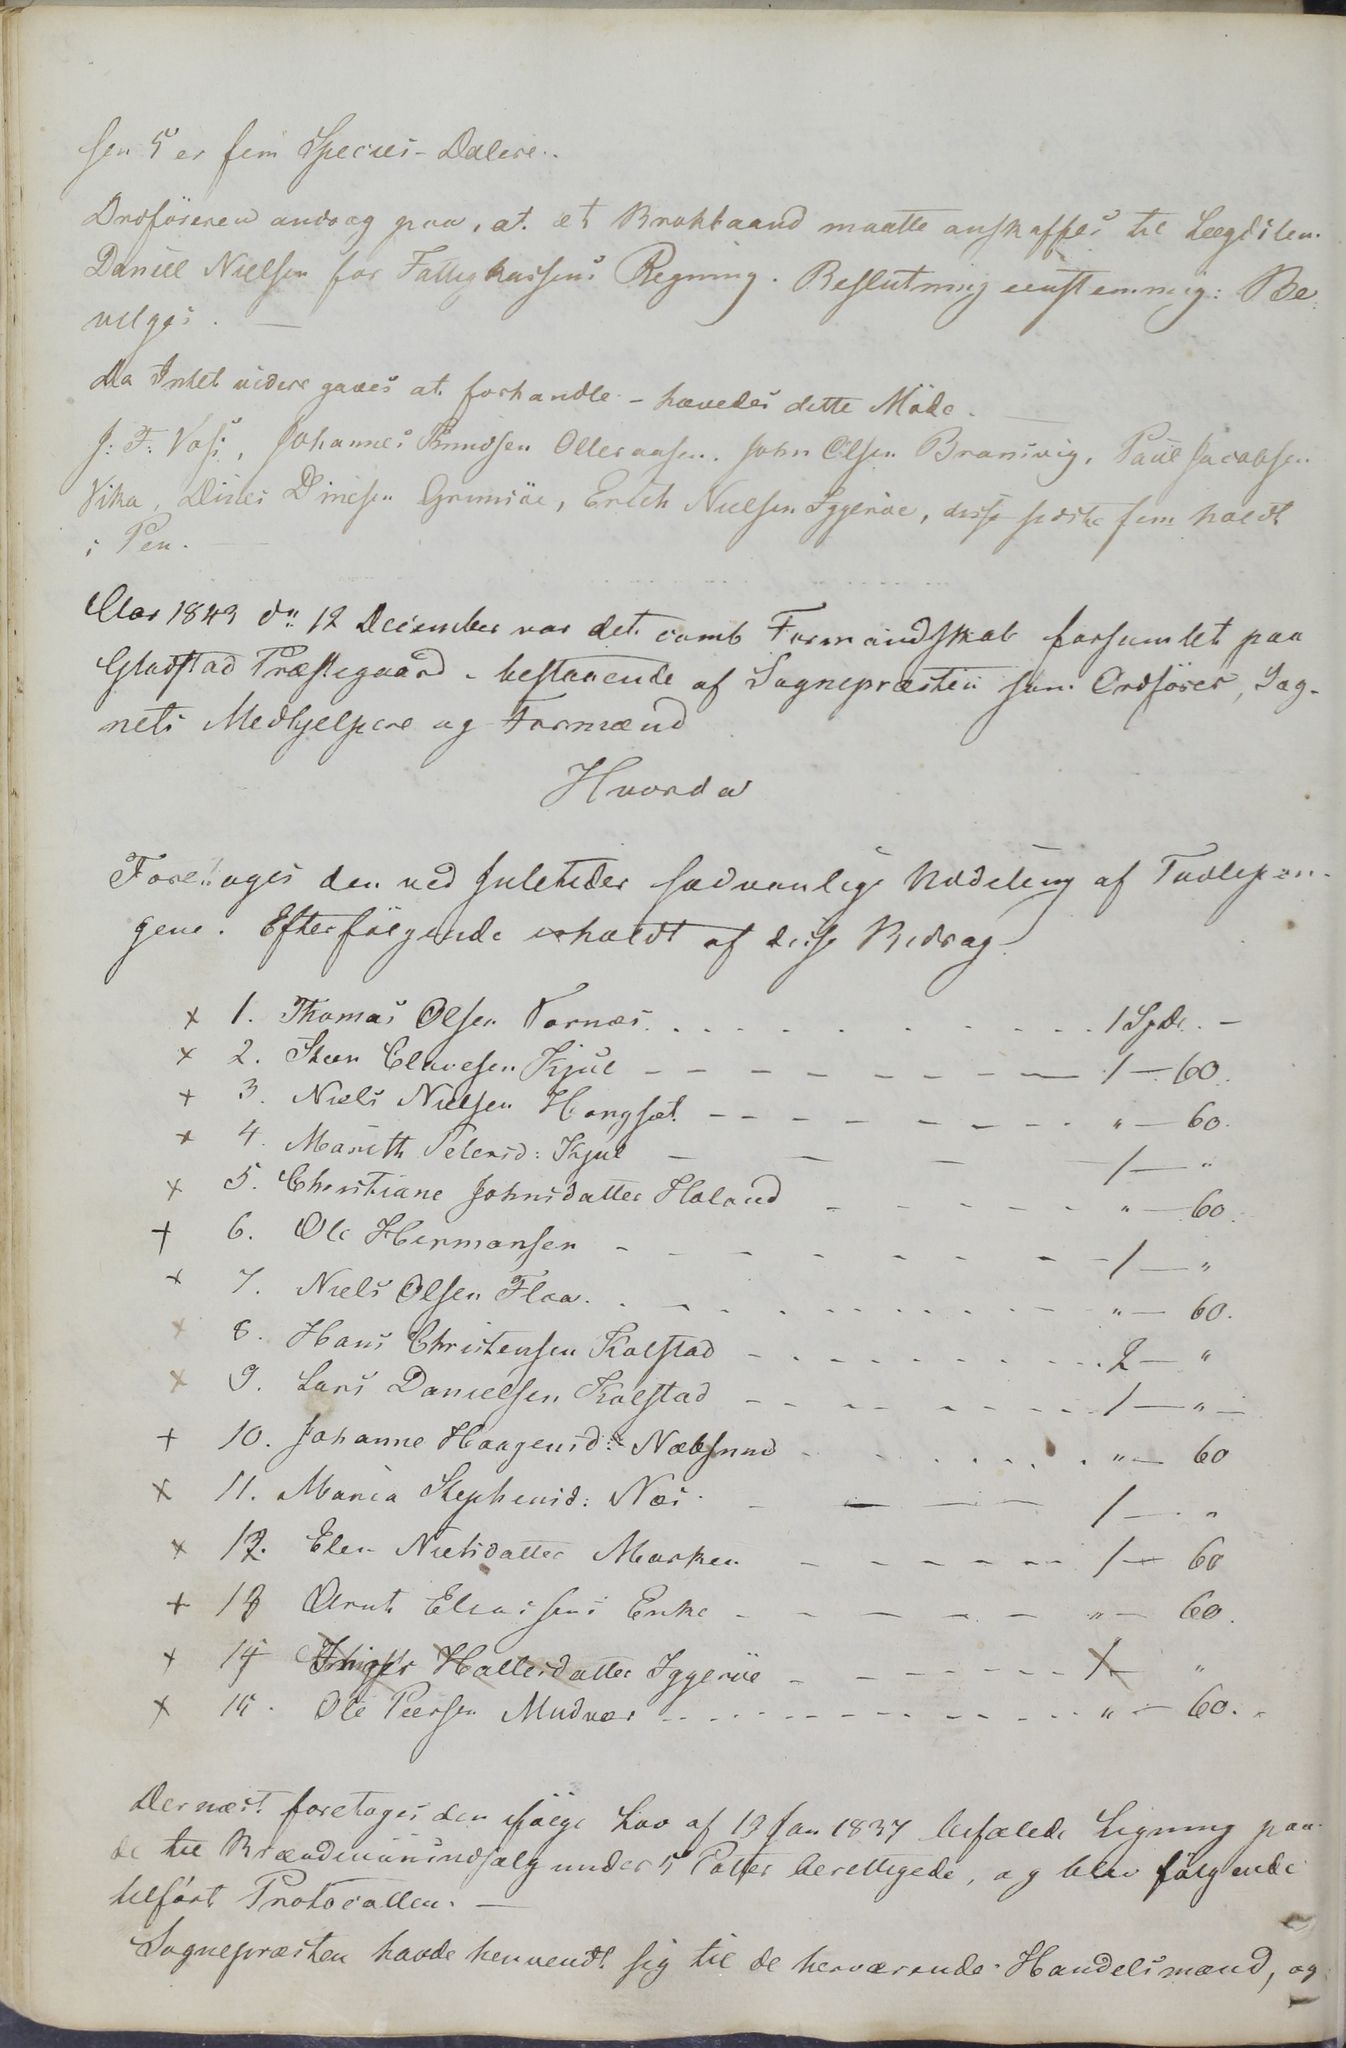 sen 5 er fem Species-Dalere.
Ordföreren androg paa, at et Brokbaand maatte anskaffes til Lægdslem
Daniel Nielsen for Fattigkassens Regning. Beslutning eenstemmig: Be-
vilges. —
Da Intet videre gaves at forhandle - hævedes dette Möde. —
J: F: Voss, Johannes Knudsen Olleraasen. John Olsen Bransvig, Paul Jacobsen
Vika, Dines Dinesen Grimsöe, Erich Nielsen Iggeröe, disse sidste fem holdt
i Pen. —
Aar 1843 dn 12 December var det comb Formandskab forsamlet paa
Gladstad Præstegaard - bestaaende af Sognepræsten som Ordförer, Sog-
nets Medhjelpere og Formænd
Hvorda
Foretoges den ved Juletider sædvanlige Uddeling af Tavlepen-
gene. Efterfölgende erholdt af disse Bidrag.
x 1. Thomas Olsen Vornæs . . . . . 1 Spdl. —
x 2. Steen Clavesen Kjul — — — — 1 — 60.
+ 3. Niels Nielsen Hongset — — — — " — 60.
x 4. Marith Petersd: Kjul — — — — 1 — "
x 5. Christiane Johnsdatter Holand - - - - " — 60.
+ 6. Ole Hermansen - - - - 1 — "
x 7. Niels Olsen Flaa. . . . . " — 60.
x 8. Hans Christensen Kolstad - - - - 2 — "
x 9. Lars Danielsen Kolstad - - - - 1 — " —
+ 10. Johanne Haagensd: Næbsund - . . . . " — 60
x 11. Maria Stephensd: Næs. — — — 1 — "
x 12. Elen Nielsdatter Marken - - - - 1 — 60
+ 13 Arnt Eliassens Enke - - - - " — 60.
x 14 Hallesdatter Iggeröe - - - - 1 — "
x 15. Ole Peersen Mudvær - - - - " — 60.
Dernæst foretoges den ifölge Lov af 13 Jan 1837 befalede Ligning paa
de til Brændeviinsudsalg under 5 Potter berettigede, og blev fölgende
tilfört Protocollen. —
Sognepræsten havde henvendt sig til de herværende Handelsmænd, og